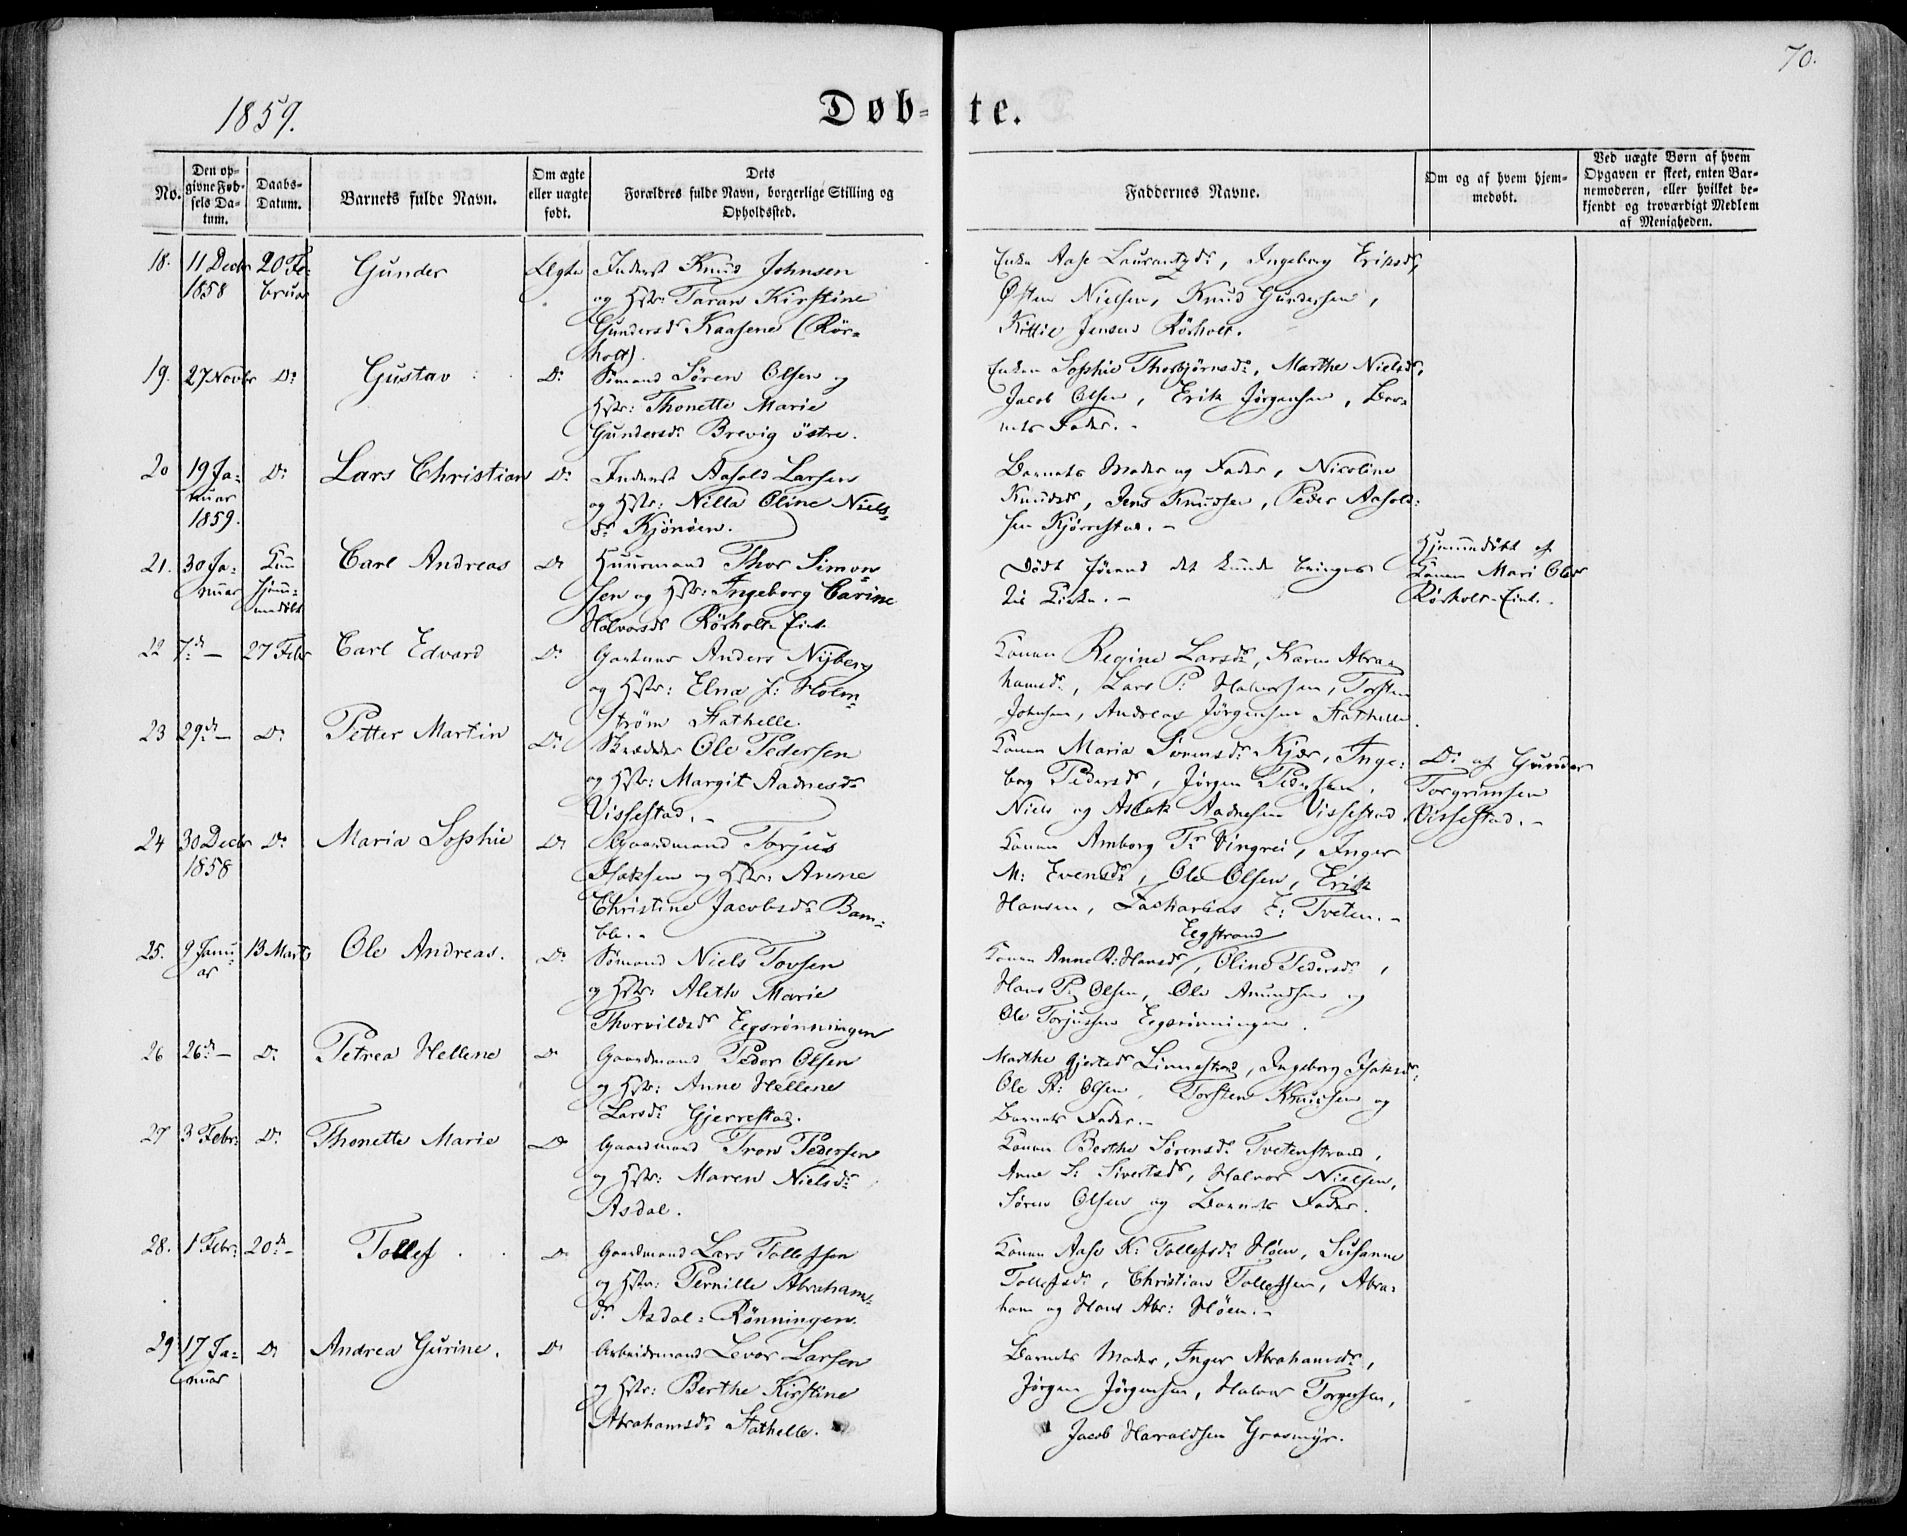 70.
1859.
Døb-te.
No.
Den opgivne Fødsels Datum.
Daabs-Datum.
Barnets fulde Navn.
Om ægte eller uægte født.
Dets Forældres fulde Navn, borgerlige Stilling og Opholdssted.
Faddernes Navne.
Om og af hvem hjemmedøbt.
Ved uægte Børn af hvem Opgaven er skeet, enten Barnemoderen, eller hvilket bekjendt og troværdigt Medlem af Menigheden.
18. 11 Decbr 1858 20 Februar Gunder Ægte
Inderst Knud Johnsen
og Hstr: Taran Kirstine
Gundersdr Kaasene (Rør-
holt).
Enke Aase, Ingeborg Eriksdr,
Østen Nielsen, Knud Gundersen,
Kittil Jensen Rörholt.
19. 27 Novbr Do Gustav Do
Sømand Søren Olsen og
Hstr: Thonette Marie
Gundersdr Brevig östre.
Enken Sophie Thorbjørnsdr, Marthe Nielsdr,
Jacob Olsen, Erik Jørgensen, Bar-
nets Fader. -
20 19 Januar 1859. Do Lars Christian Do
Inderst Aasold Larsen
og Hstr: Nilla Oline Niels-
dr Kjönöen.
Barnets Moder og Fader, Nicoline
Knudsdr, Jens Knudsen, Peder Aasold-
sen Kjørrestad. -
21. 30 Januar Kun hjemmedøbt Carl Andreas Do
Huusmand Thor Simon-
sen og Hstr: Ingeborg Carine
Halvorsdr Rörholt Eiet.
Dödt førend det kunde bringes
til Kirke. -
Hjemmedöbt af
Konen Mari Olsdr
Rörholt-Eiet.
22 7de - 27 Febr Carl Edvard Do
Gartner Anders Nyberg
og Hstr: Elna J: Holm-
ström Stathelle.
Konen Regine Larsdr, Karen Abra-
hamsdr, Lars P: Halvorsen, Torsten
Johnsen, Andreas Jörgensen Stathelle.
23 29de - Do Petter Martin Do
Skrædder Ole Pedersen
og Hstr: Margit Aadnesdr
Vissestad. -
Konen Maria Sörensdr Kjær, Inge-
borg Pedersdr, Jörgen Pedersen,
Niels og Aslak Aadnesen Vissestad
Do af Gunder
Torgrimsen
Vissestad. -
24 30 Decbr 1858 Do Maria Sophie Do
Gaardmand Torjus
Isaksen og Hstr: Anne
Christine Jacobsdr Bam-
ble. -
Konen Amborg Tr Vingrei, Inger
M: Evensdr, Ole Olsen, Erik
Hansen, Zacharias E: Tveten. -
25. 9 Januar 13 Marts Ole Andreas. Do
Sømand Niels Tovsen
og Hstr: Aleth Marie
Thorvildsdr Eegsrønningen
Eegstrand
Konen Anne R: Hansdr, Oline Pedersdr,
Hans P. Olsen, Ole Amundsen og
Ole Torjussen Eegsrönningen.
26 26de - Do Petrea Hellene Do
Gaardmand Peder Olsen
og Hstr: Anne Hellene
Larsdr Gjerrestad.
Marthe Gjertsdr Linnestad, Ingeborg Isaksdr
Ole St: Olsen, Torsten Knudsen og
Barnets Fader. -
27 3 Febr: Do Thonette Marie Do
Gaardmand Tron Pedersen
og Hstr: Maren Nielsdr
Asdal.
Konen Berthe Sørensdr Tvetenstrand,
Anne S: Sivertsdr, Halvor Nielsen,
Sören Olsen og Barnets Fader.
28. 1 Febr: 20de - Tollef Do
Gaardmand Lars Tollefsen
og Hstr: Pernille Abrahams-
dr Asdal-Rönningen
Konen Aase K: Tollefsdr Höen, Susanne
Tollefsdr, Christian Tollefsen, Abra-
ham og Hans Abr: Höen. -
29 17 Januar Do Andrea Gurine. Do
Arbeidsmand Levor Larsen
og Hstr: Berthe Kirstine
Abrahamsdr Stathelle.
Barnets Moder, Inger Abrahamsdr,
Jörgen Jörgensen, Halvor Torgersen,
Jacob Haraldsen Grasmyr.